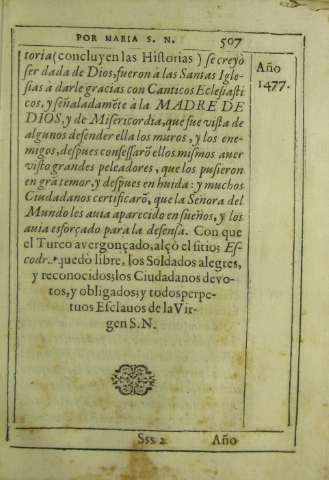 POR MARIA S. N. 507
toria (concluyen las Historias) se creyò
ser dada de Dios, fueron à las Santas Igle-
sias à darle gracias con Canticos Eclesiasti
cos, y señaladamẽte à la MADRE DE
DIOS, y de Misericordia, que fue vista de
algunos defender ella los muros, y los ene-
migos, despues confessarõ ellos mismos aver
visto grandes peleadores, que los pusieron
en grã temor, y despues en huida: y muchos
Ciudadanos certificarõ, que la Señora del
Mundo les auia aparecido en sueños, y los
auia esforçado para la defensa. Con que
el Turco avergonçado, alçò el sitio; Es-
quedò libre, los Soldados alegres,
y reconocidos; los Ciudadanos devo-
tos, y obligados; y todos perpe-
tuos Esclauos de la Vir-
gen S.N.
Año
1477.
Sss 2 Año